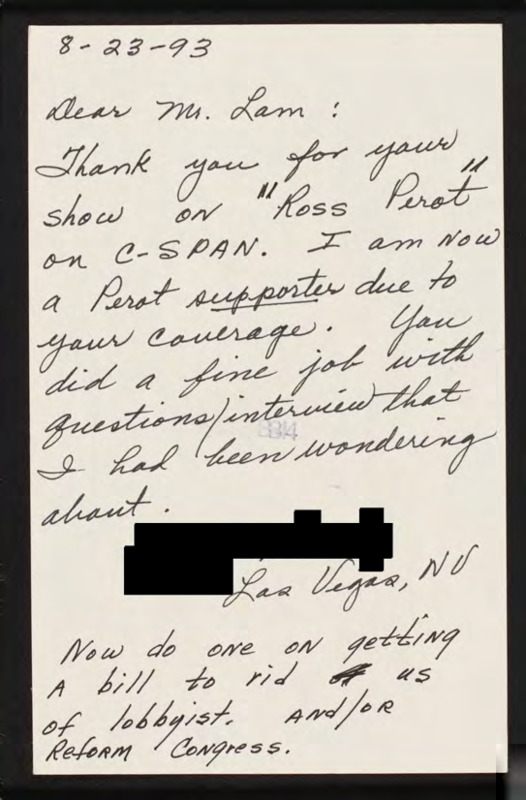 8-23-93
Dear Mr. Lam :
Thank you for your
show on "Ross Perot"
on C-SPAN. I am now
a Perot supporter due to
your coverage. You
did a fine job with
questions/interview that
I had been wondering
about.
Las Vegas, NV
Now do one on getting
A bill to rid us
of lobbyist. AND/OR
Reform Congress.